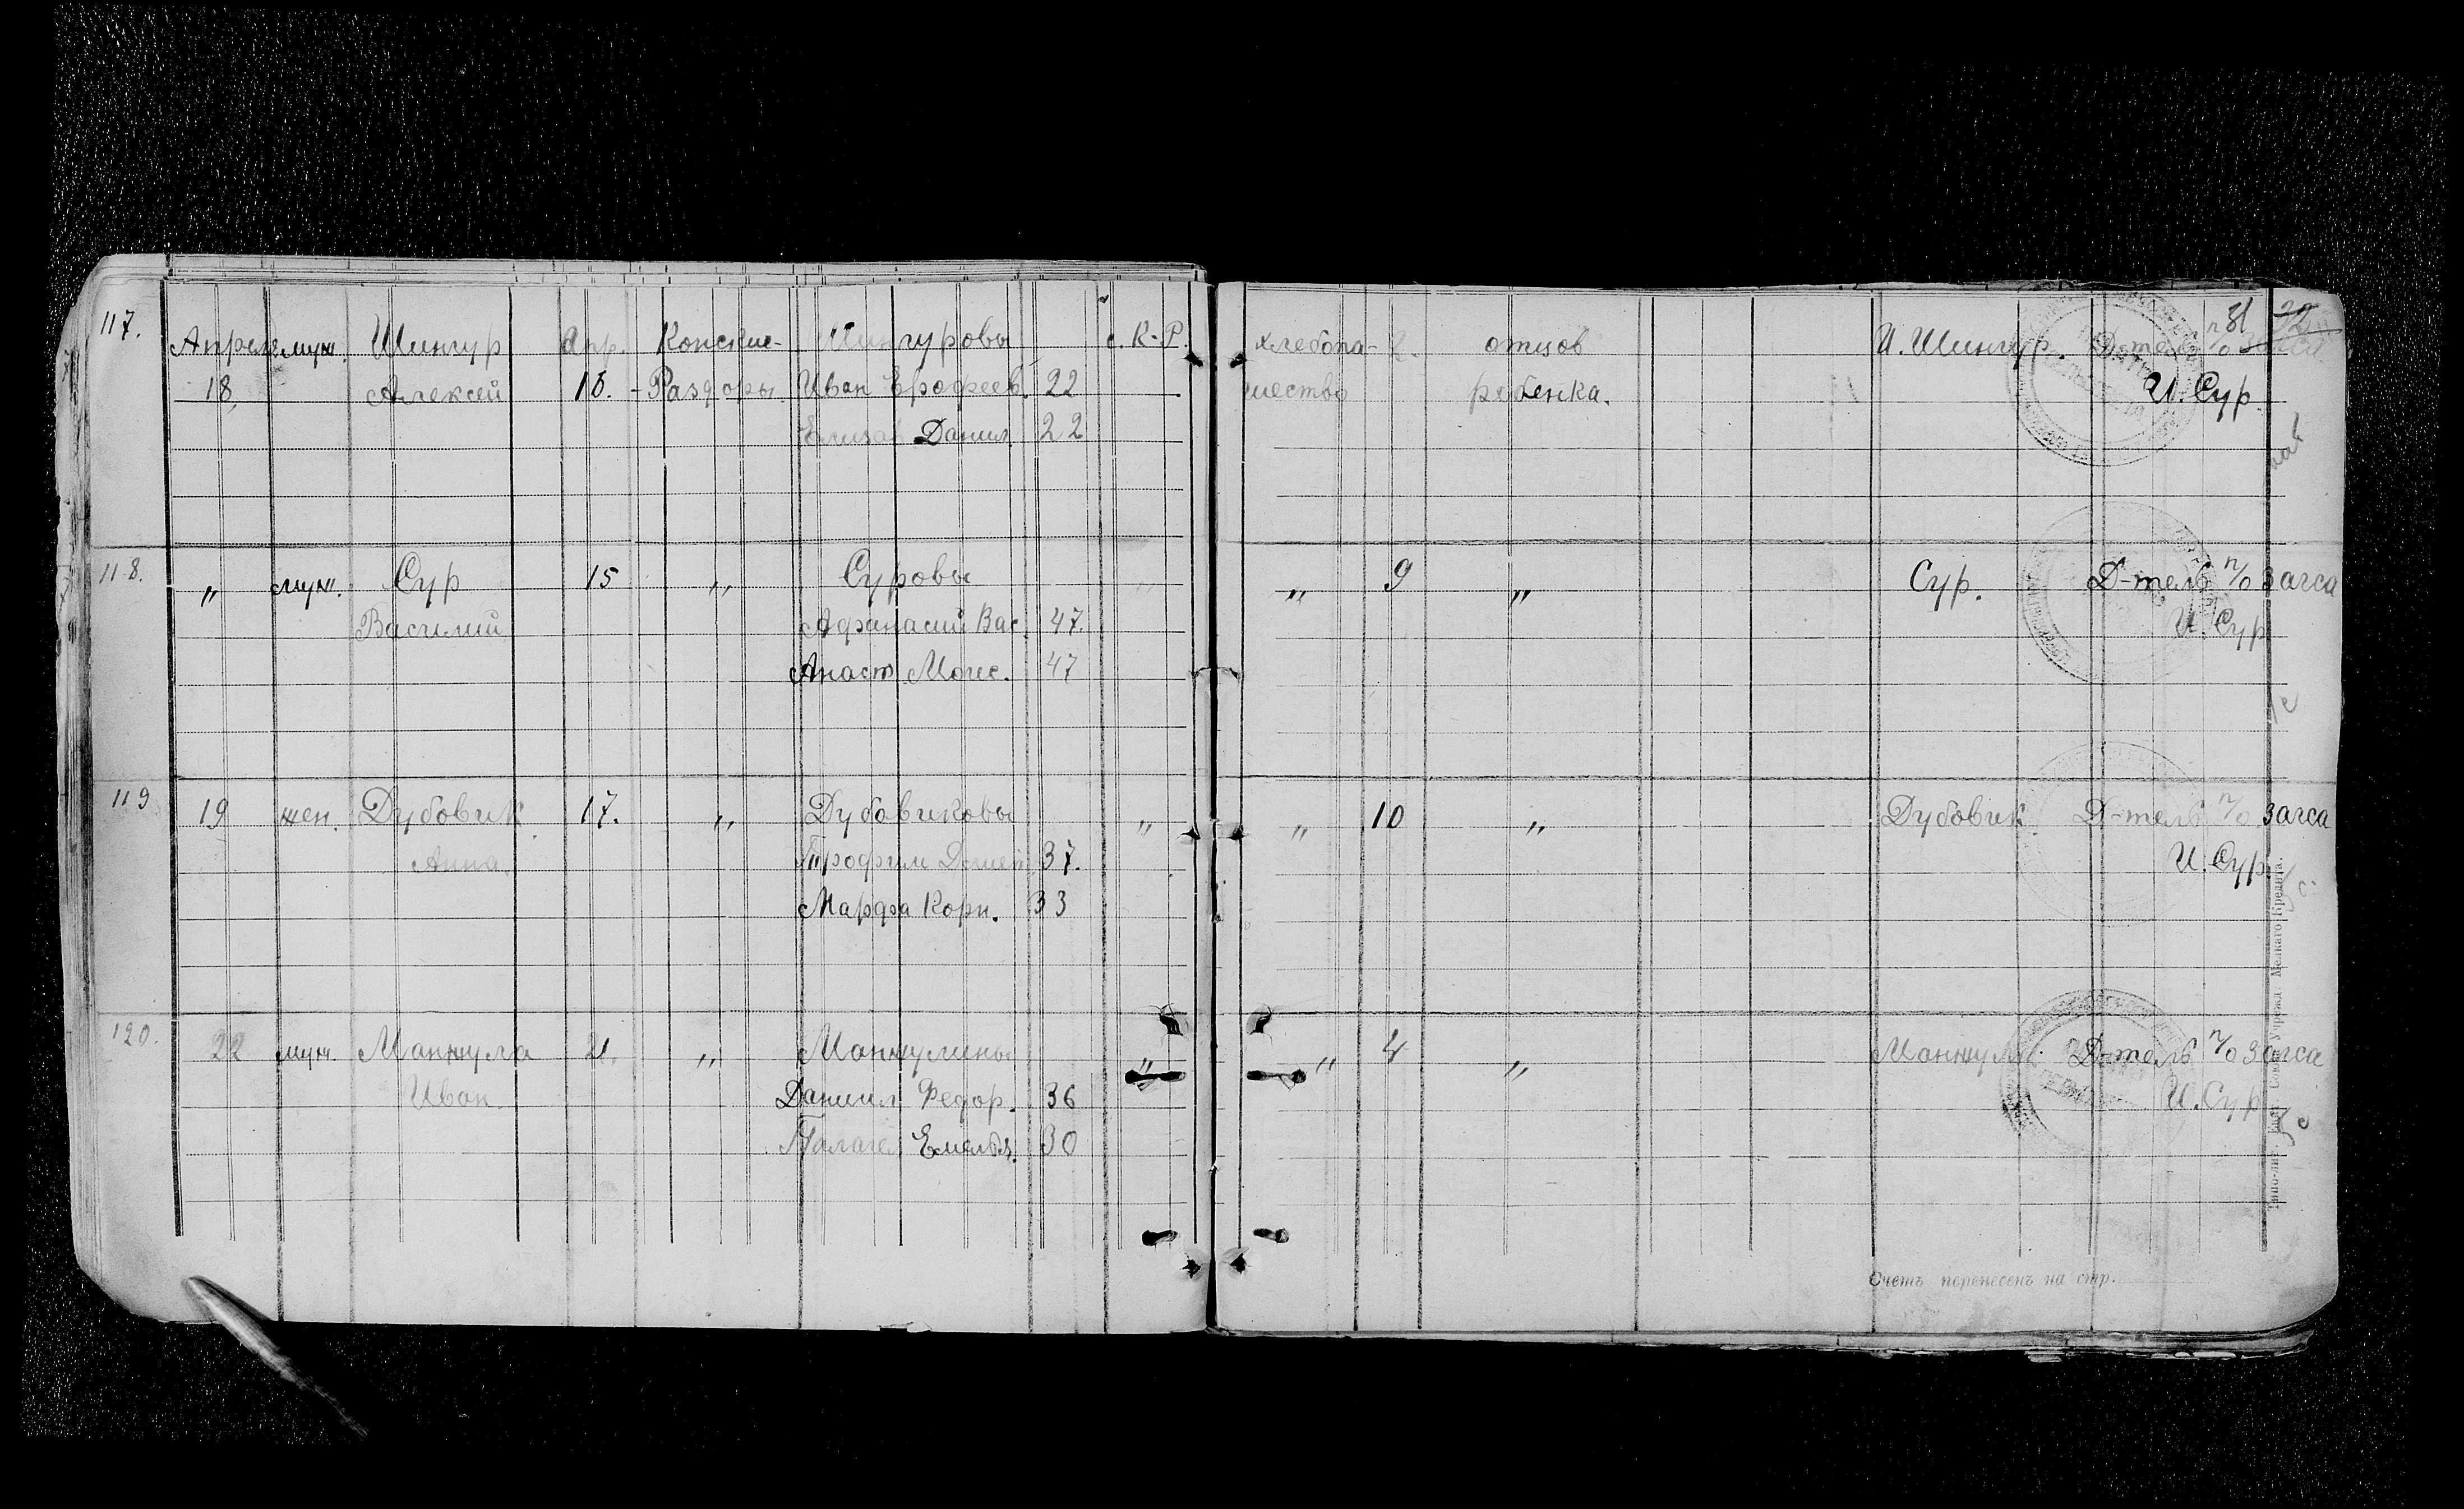 31 32
117. Апреля муж. Шингур Апр. Конские- Шингуровы с. К-Р. хлебопа- 2. отцов И. Шингур. Д-тель п/о загса
18, Алексей 18. -Раздоры. Иван Ерофеев. 22 шество ребенка. И. Сур
Елизав Данил. 22
118. " муж. Сур 15 " Суровы " " 9 " Сур. Д-тель п/о загса
Василий Афанасий Вас. 47. И. Сур
Анаст Моис. 47
119 19 жен. Дубовик 17. " Дубовиковы " " 10 " Дубовик Д-тель п/о загса
Анна Трофим 37. И. Сур.
Марфа Корн. 33
120. 22 муж. Манжула 21. " Манжулины " " 4 " Манжула Д-тель п/о загса
Иван Даниил Федор. 36 И. Сур
Палагея Емельян. 30
Счетъ перенесенъ на стр.
Мелкаго Кредита.